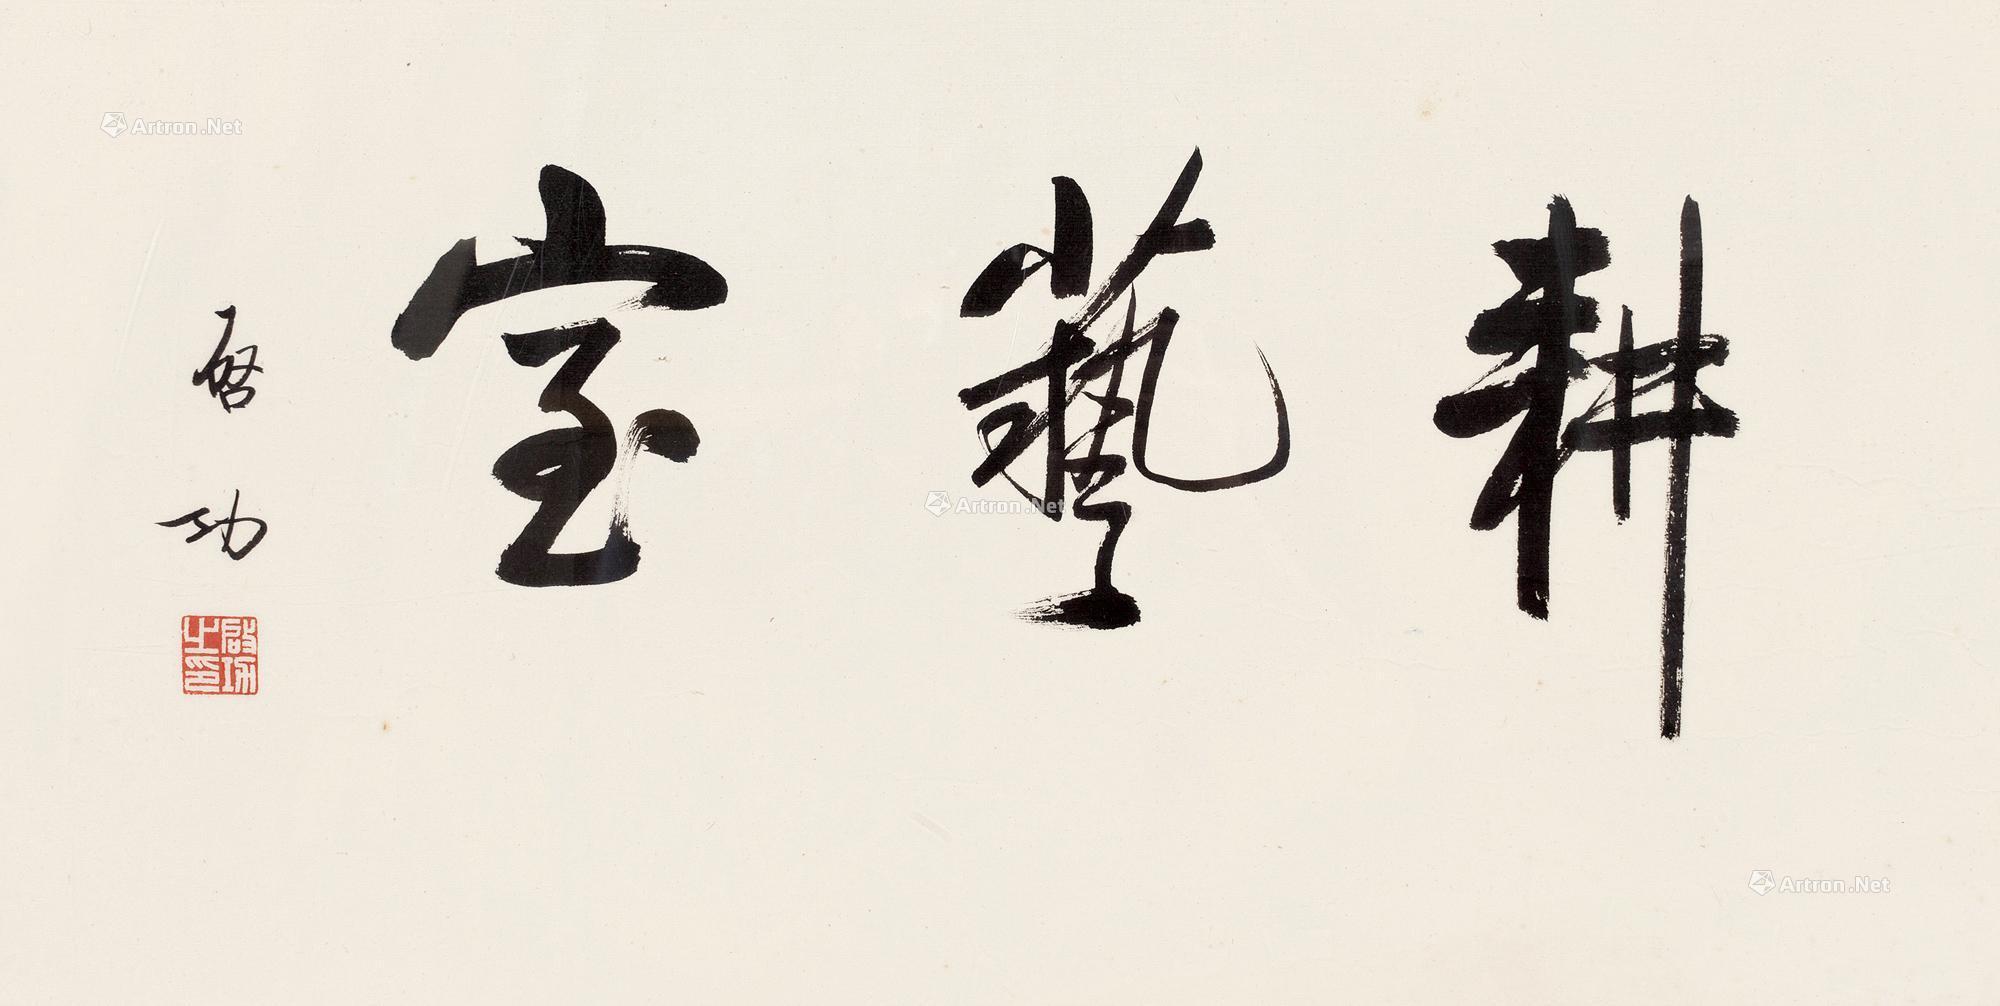 耕藝室
啟功
啟功之印
Artron.Net
Artron.Net
Artron.Net